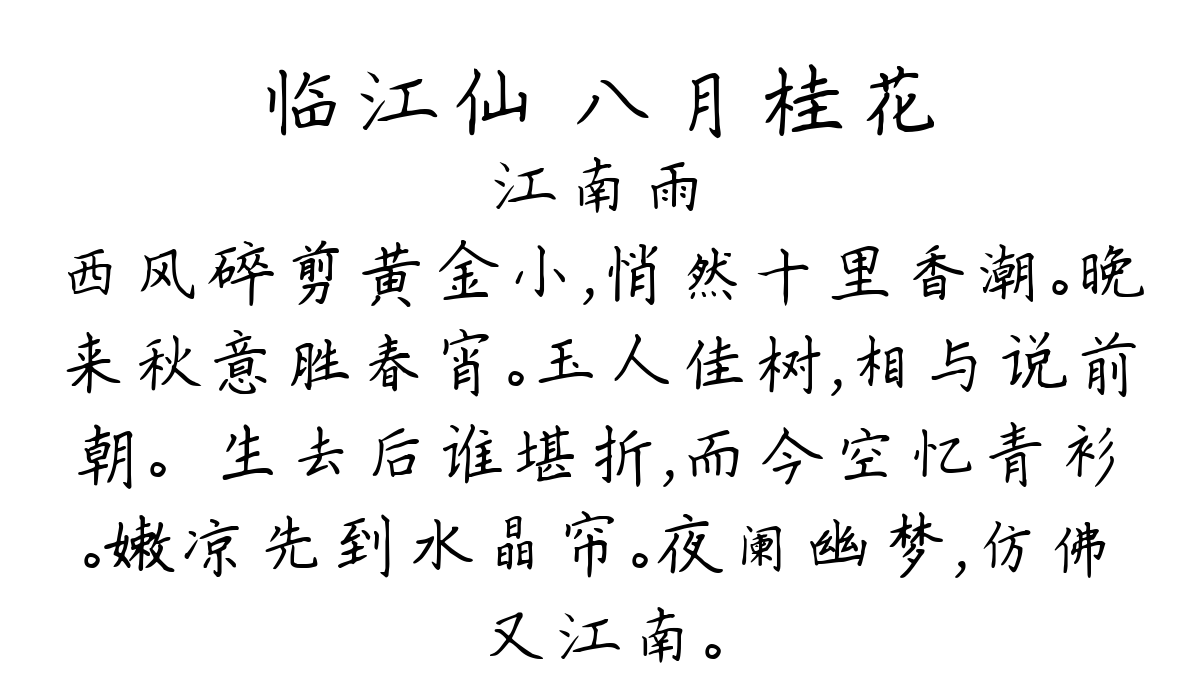 临江仙 八月桂花
江南雨
西风碎剪黄金小,悄然十里香潮。晚
来秋意胜春宵。玉人佳树,相与说前
朝。 生去后谁堪折,而今空忆青衫
。嫩凉先到水晶帘。夜阑幽梦,仿佛
又江南。